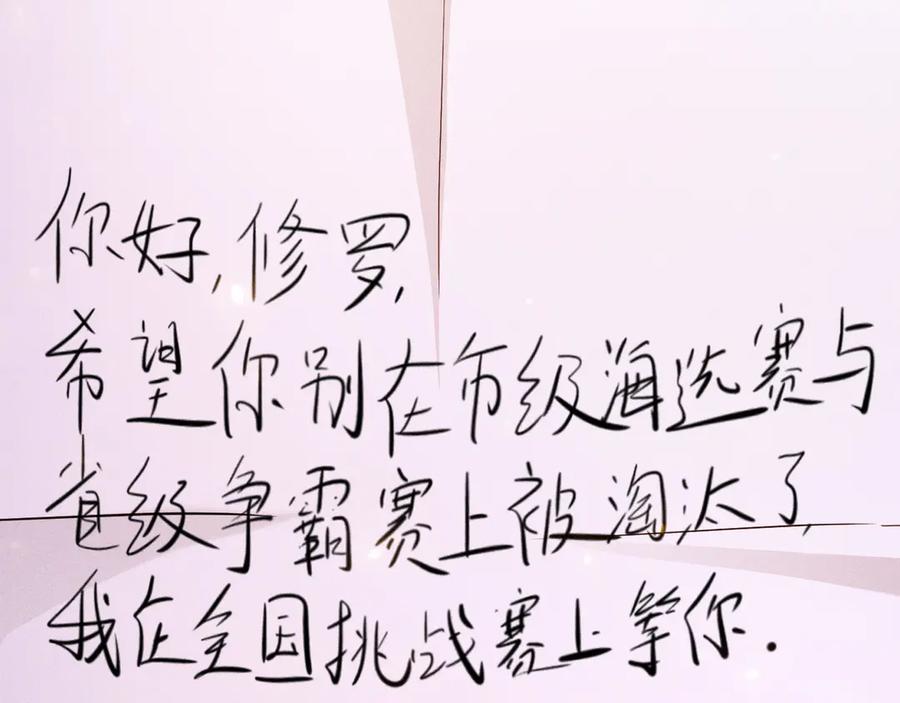 你好,修罗,
希望你别在市级海选赛与
省级争霸赛上被淘汰了,
我在全国挑战赛上等你.